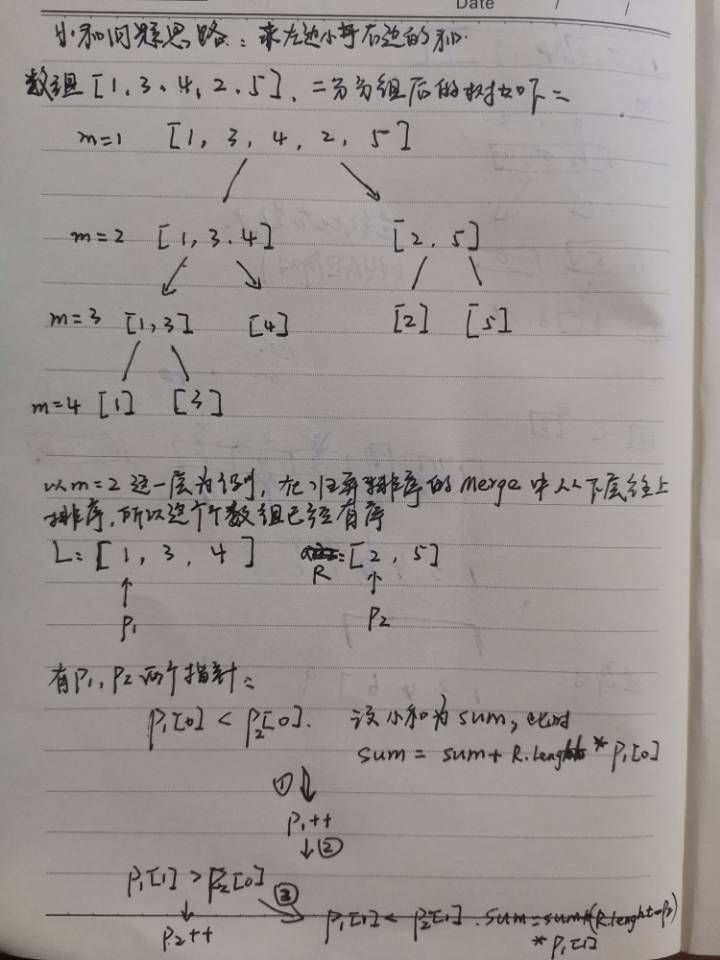 Date / /
小和问题思路:求左边小于右边的和.
数组[1,3,4,2,5],二分分组后的树如下:
m=1 [1,3,4,2,5]
m=2 [1,3,4] [2,5]
m=3 [1,3] [4] [2] [5]
m=4 [1] [3]
以m=2这一层为例,在归并排序的Merge中从下层往上
排序,所以这个个数组已经有序
L:[1,3,4] R=[2,5]
P1 P2
有P1,P2两个指针:
P1[0]<P2[0]. 设小和为sum,此时
sum=sum+R.lenght*P1[0]
①
P1++
②
P1[1]>P2[0] ③
P2++ P1[1]<P2[1].sum=sum+(R.lenght-P2)
*P1[1]